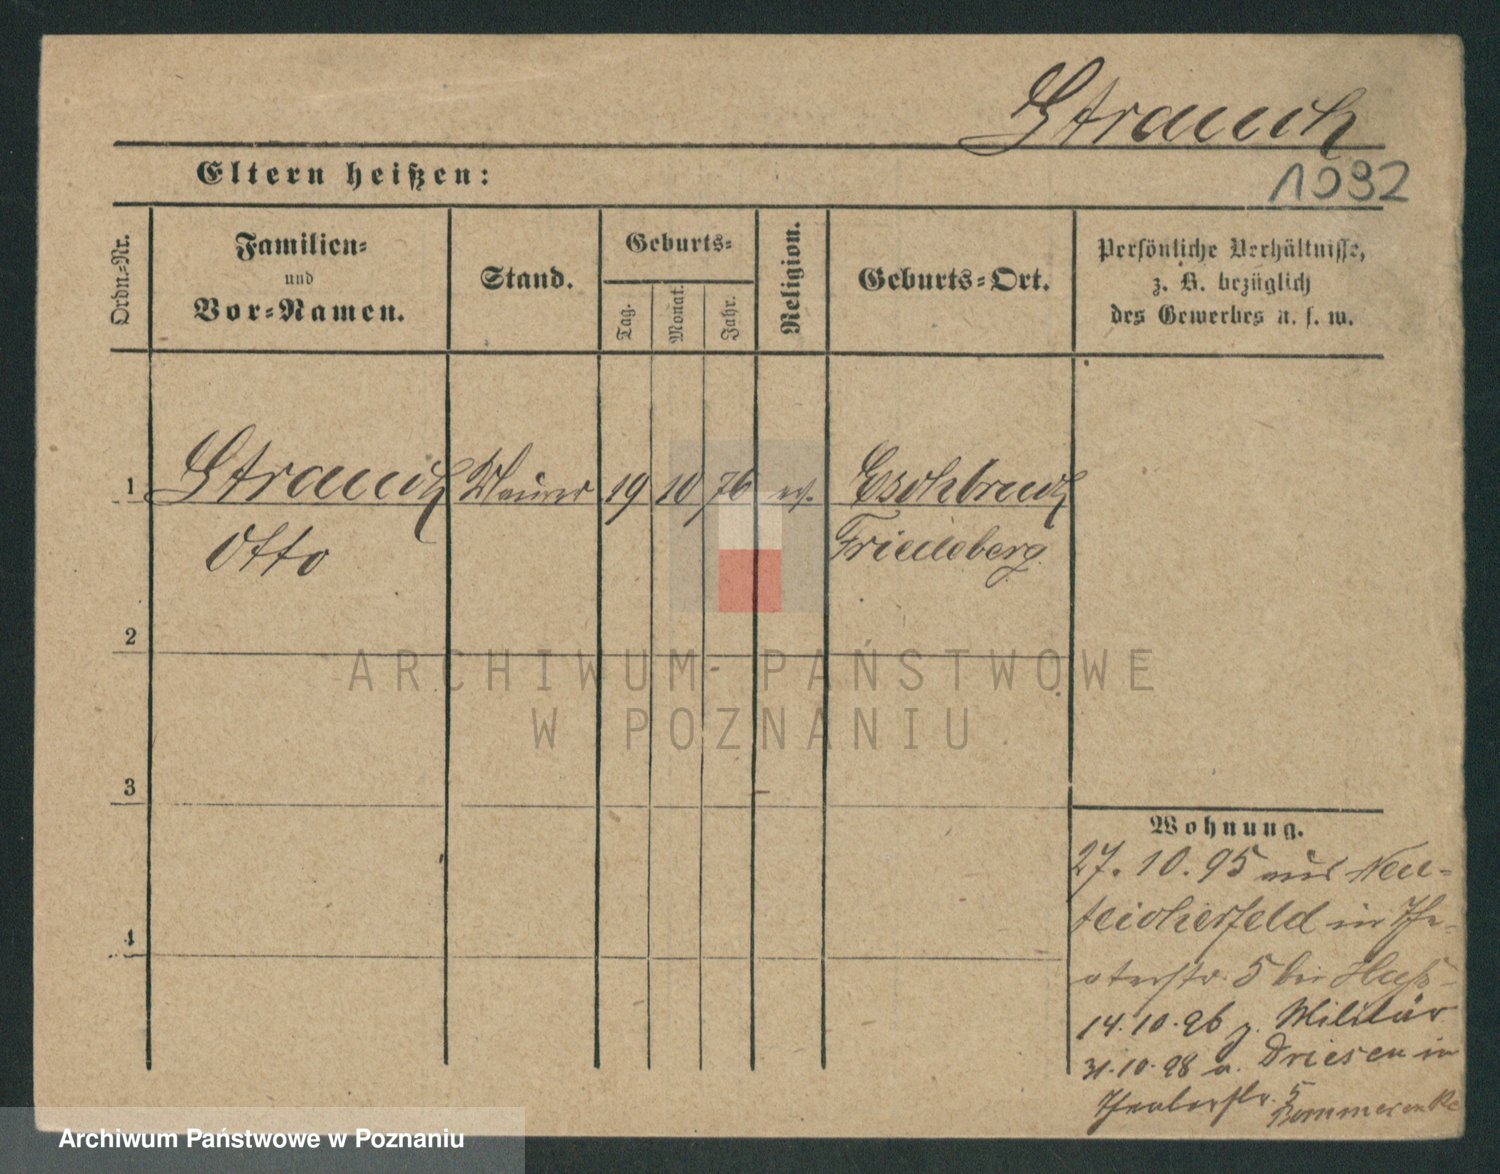 Strauch
1092
Eltern heißen:
Ordn.=Nr.
Familien=
und
Vor=Namen.
Stand.
Geburts=
Tag.
Monat.
Jahr.
Religion.
Geburts=Ort.
Persönliche Verhältnisse,
z. B. bezüglich
des Gewerbes u. s. w.
1 Strauch Maurer 19 10 76 ev. Eschbruch
Otto Friedeberg
2
3
4
Wohnung.
27. 10. 95 aus Neu=
teicherfeld in The=
aterstr. 5 bei
14. 10. 96 z. Militär
31. 10. 98 a. Driesen in
Theaterstr. 5
ARCHIWUM PAŃSTWOWE
W POZNANIU
Archiwum Państwowe w Poznaniu